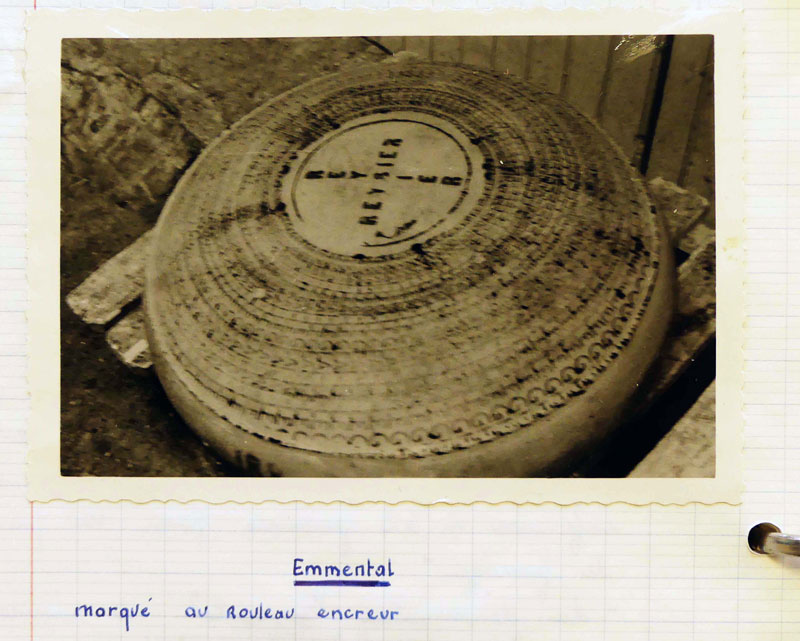 REYSIER
REYSIER
Emmental
marqué au Rouleau encreur